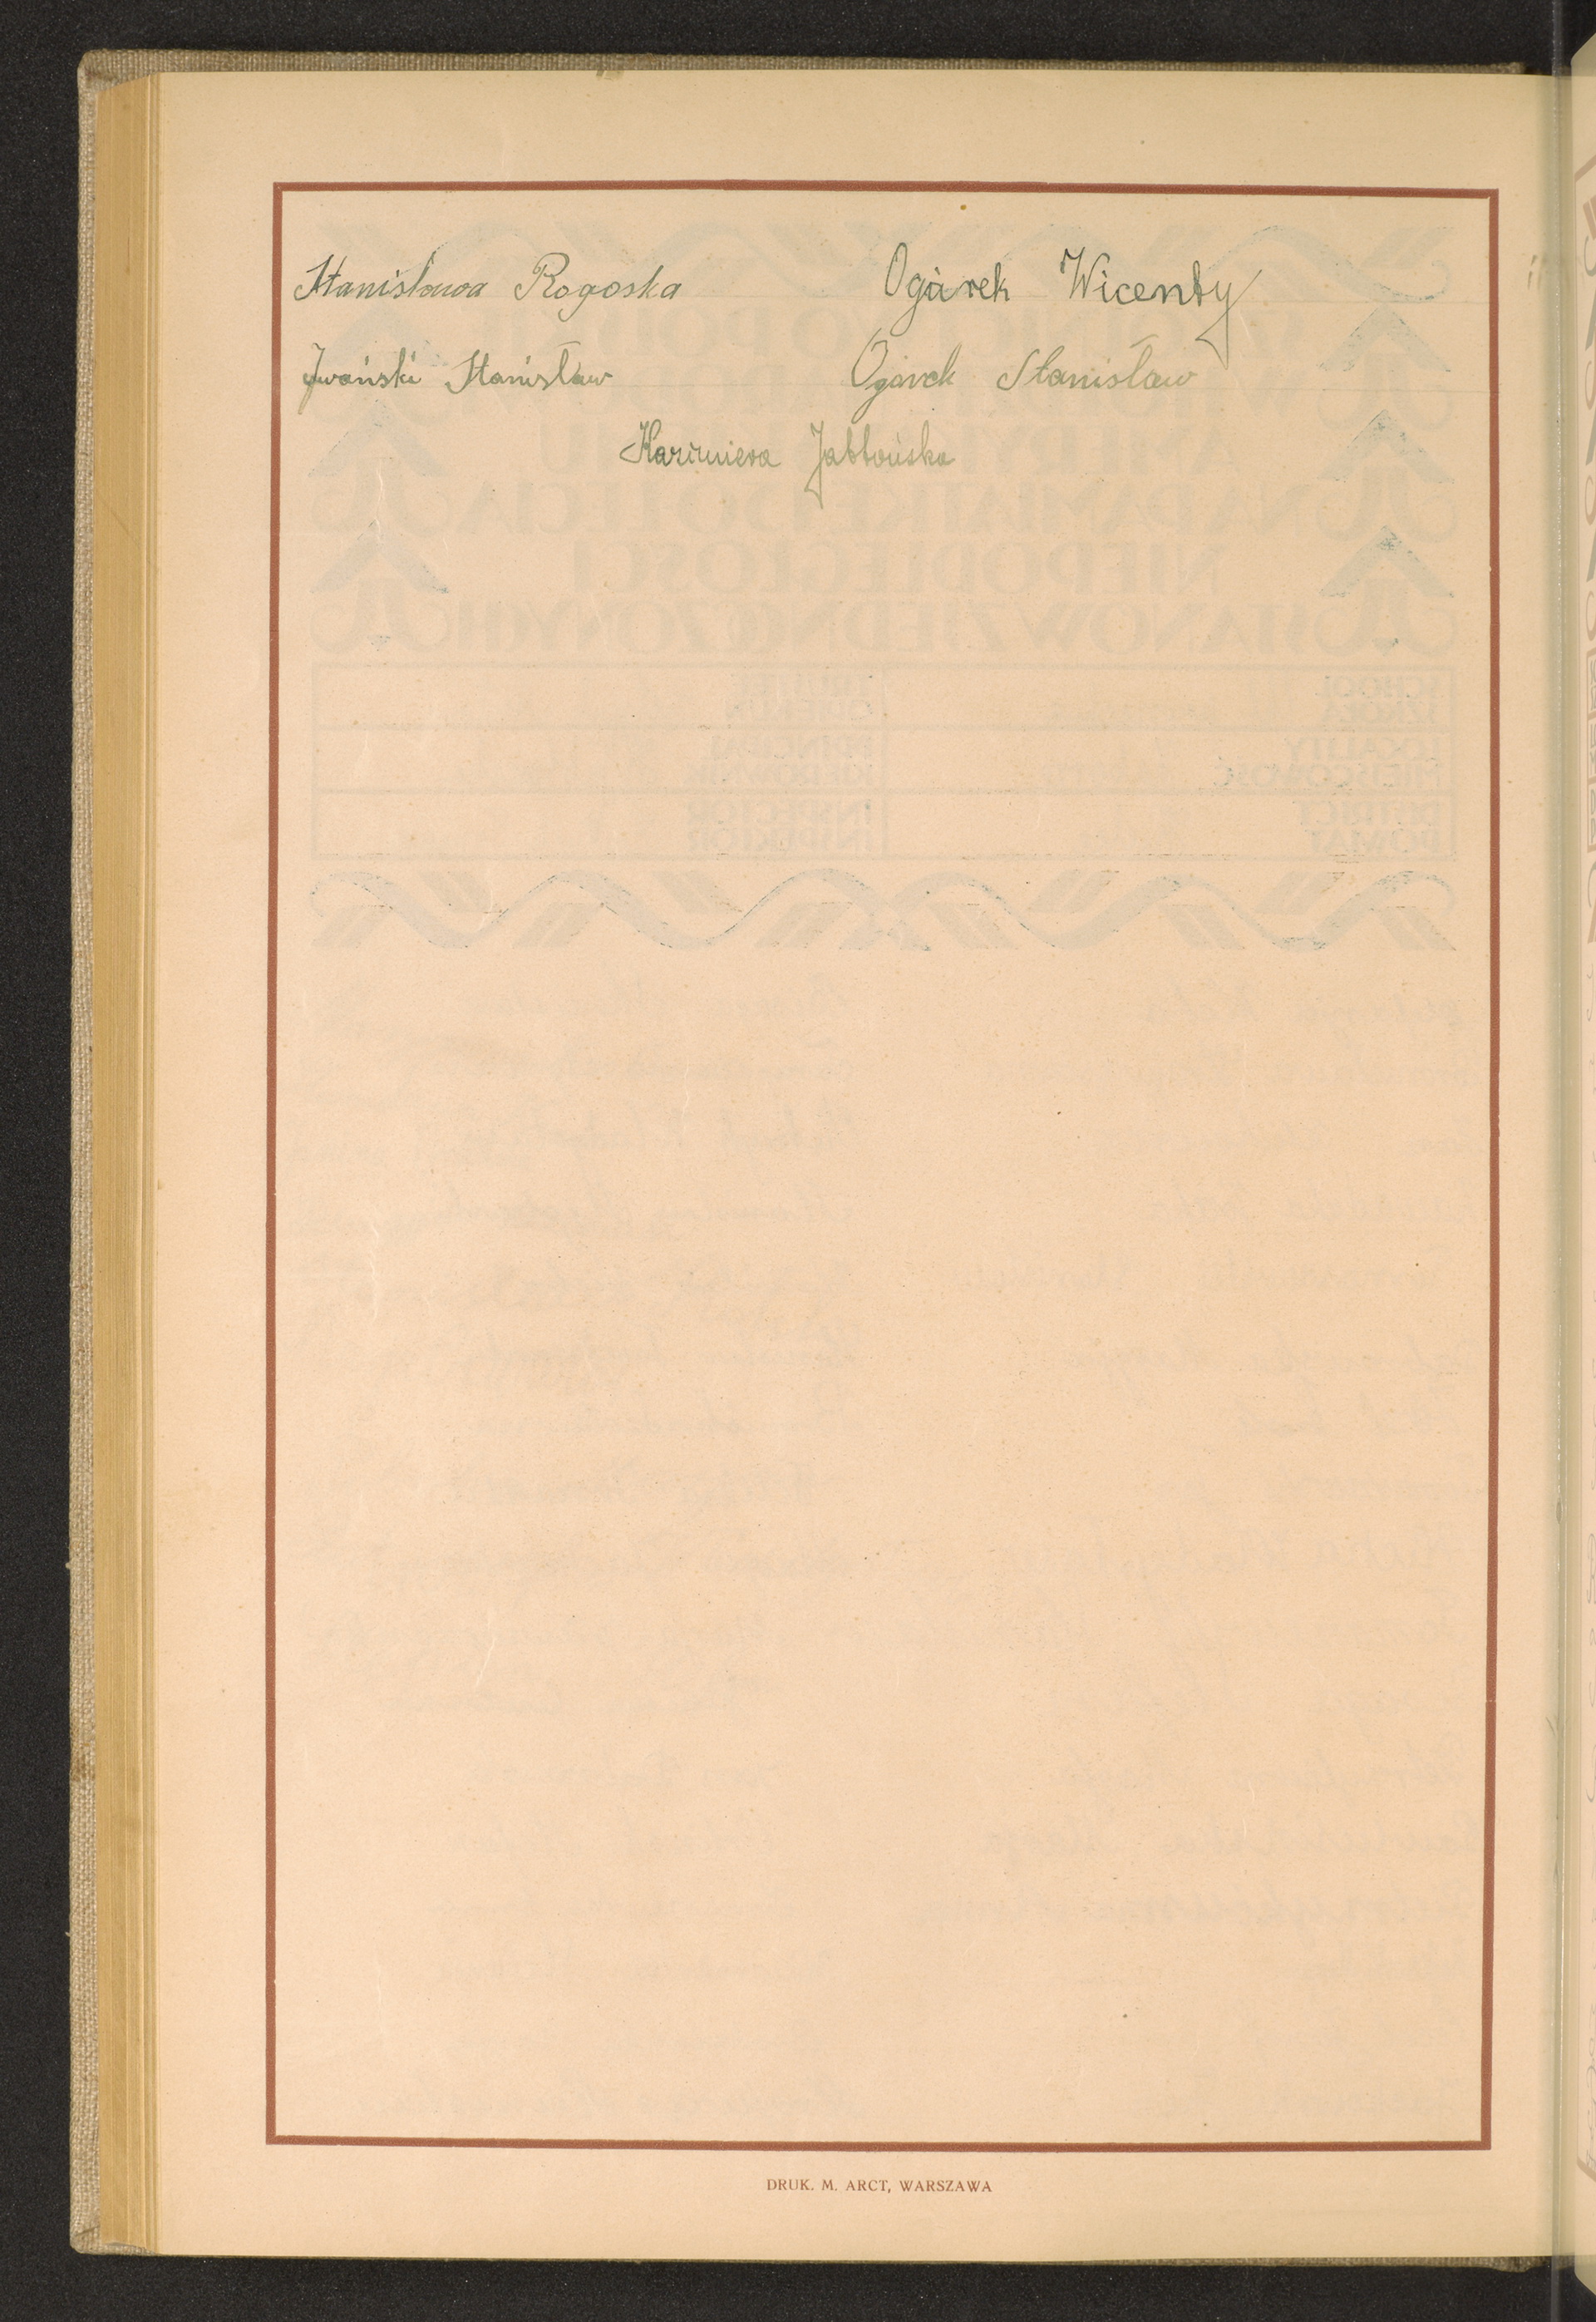 Stanisława Rogoska Ogárek Wicenty
Jwański Stanisław Ogarek Stanisław
Kazimiera Jabłońska
DRUK. M. ARCT, WARSZAWA